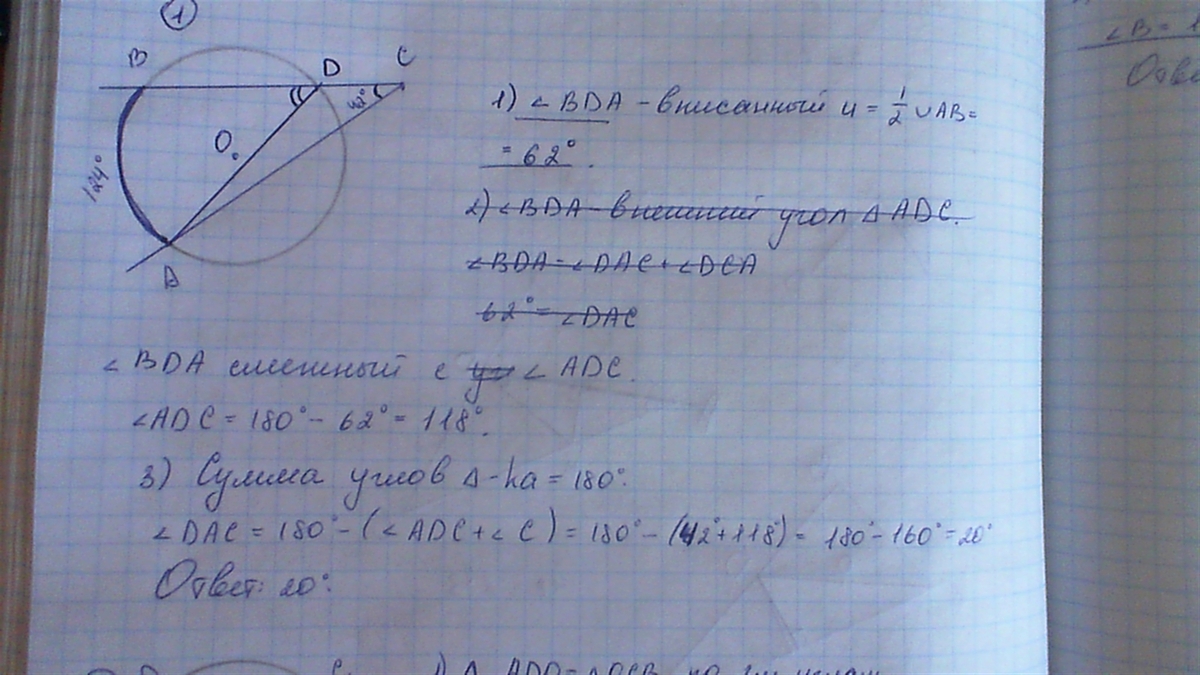 1
B D C
42°
O
124°
A
1) ∠BDA - вписанный и = 1/2 ∪AB =
= 62°.
2) ∠BDA - внешний угол △ADC.
∠BDA = ∠DAC + ∠DCA
62° = ∠DAC
∠BDA смежный с ∠ADC.
∠ADC = 180° - 62° = 118°.
3) Сумма углов △-ka = 180°.
∠DAC = 180° - (∠ADC + ∠C) = 180° - (42° + 118°) = 180° - 160° = 20°
Ответ: 20°.
∠B = 1